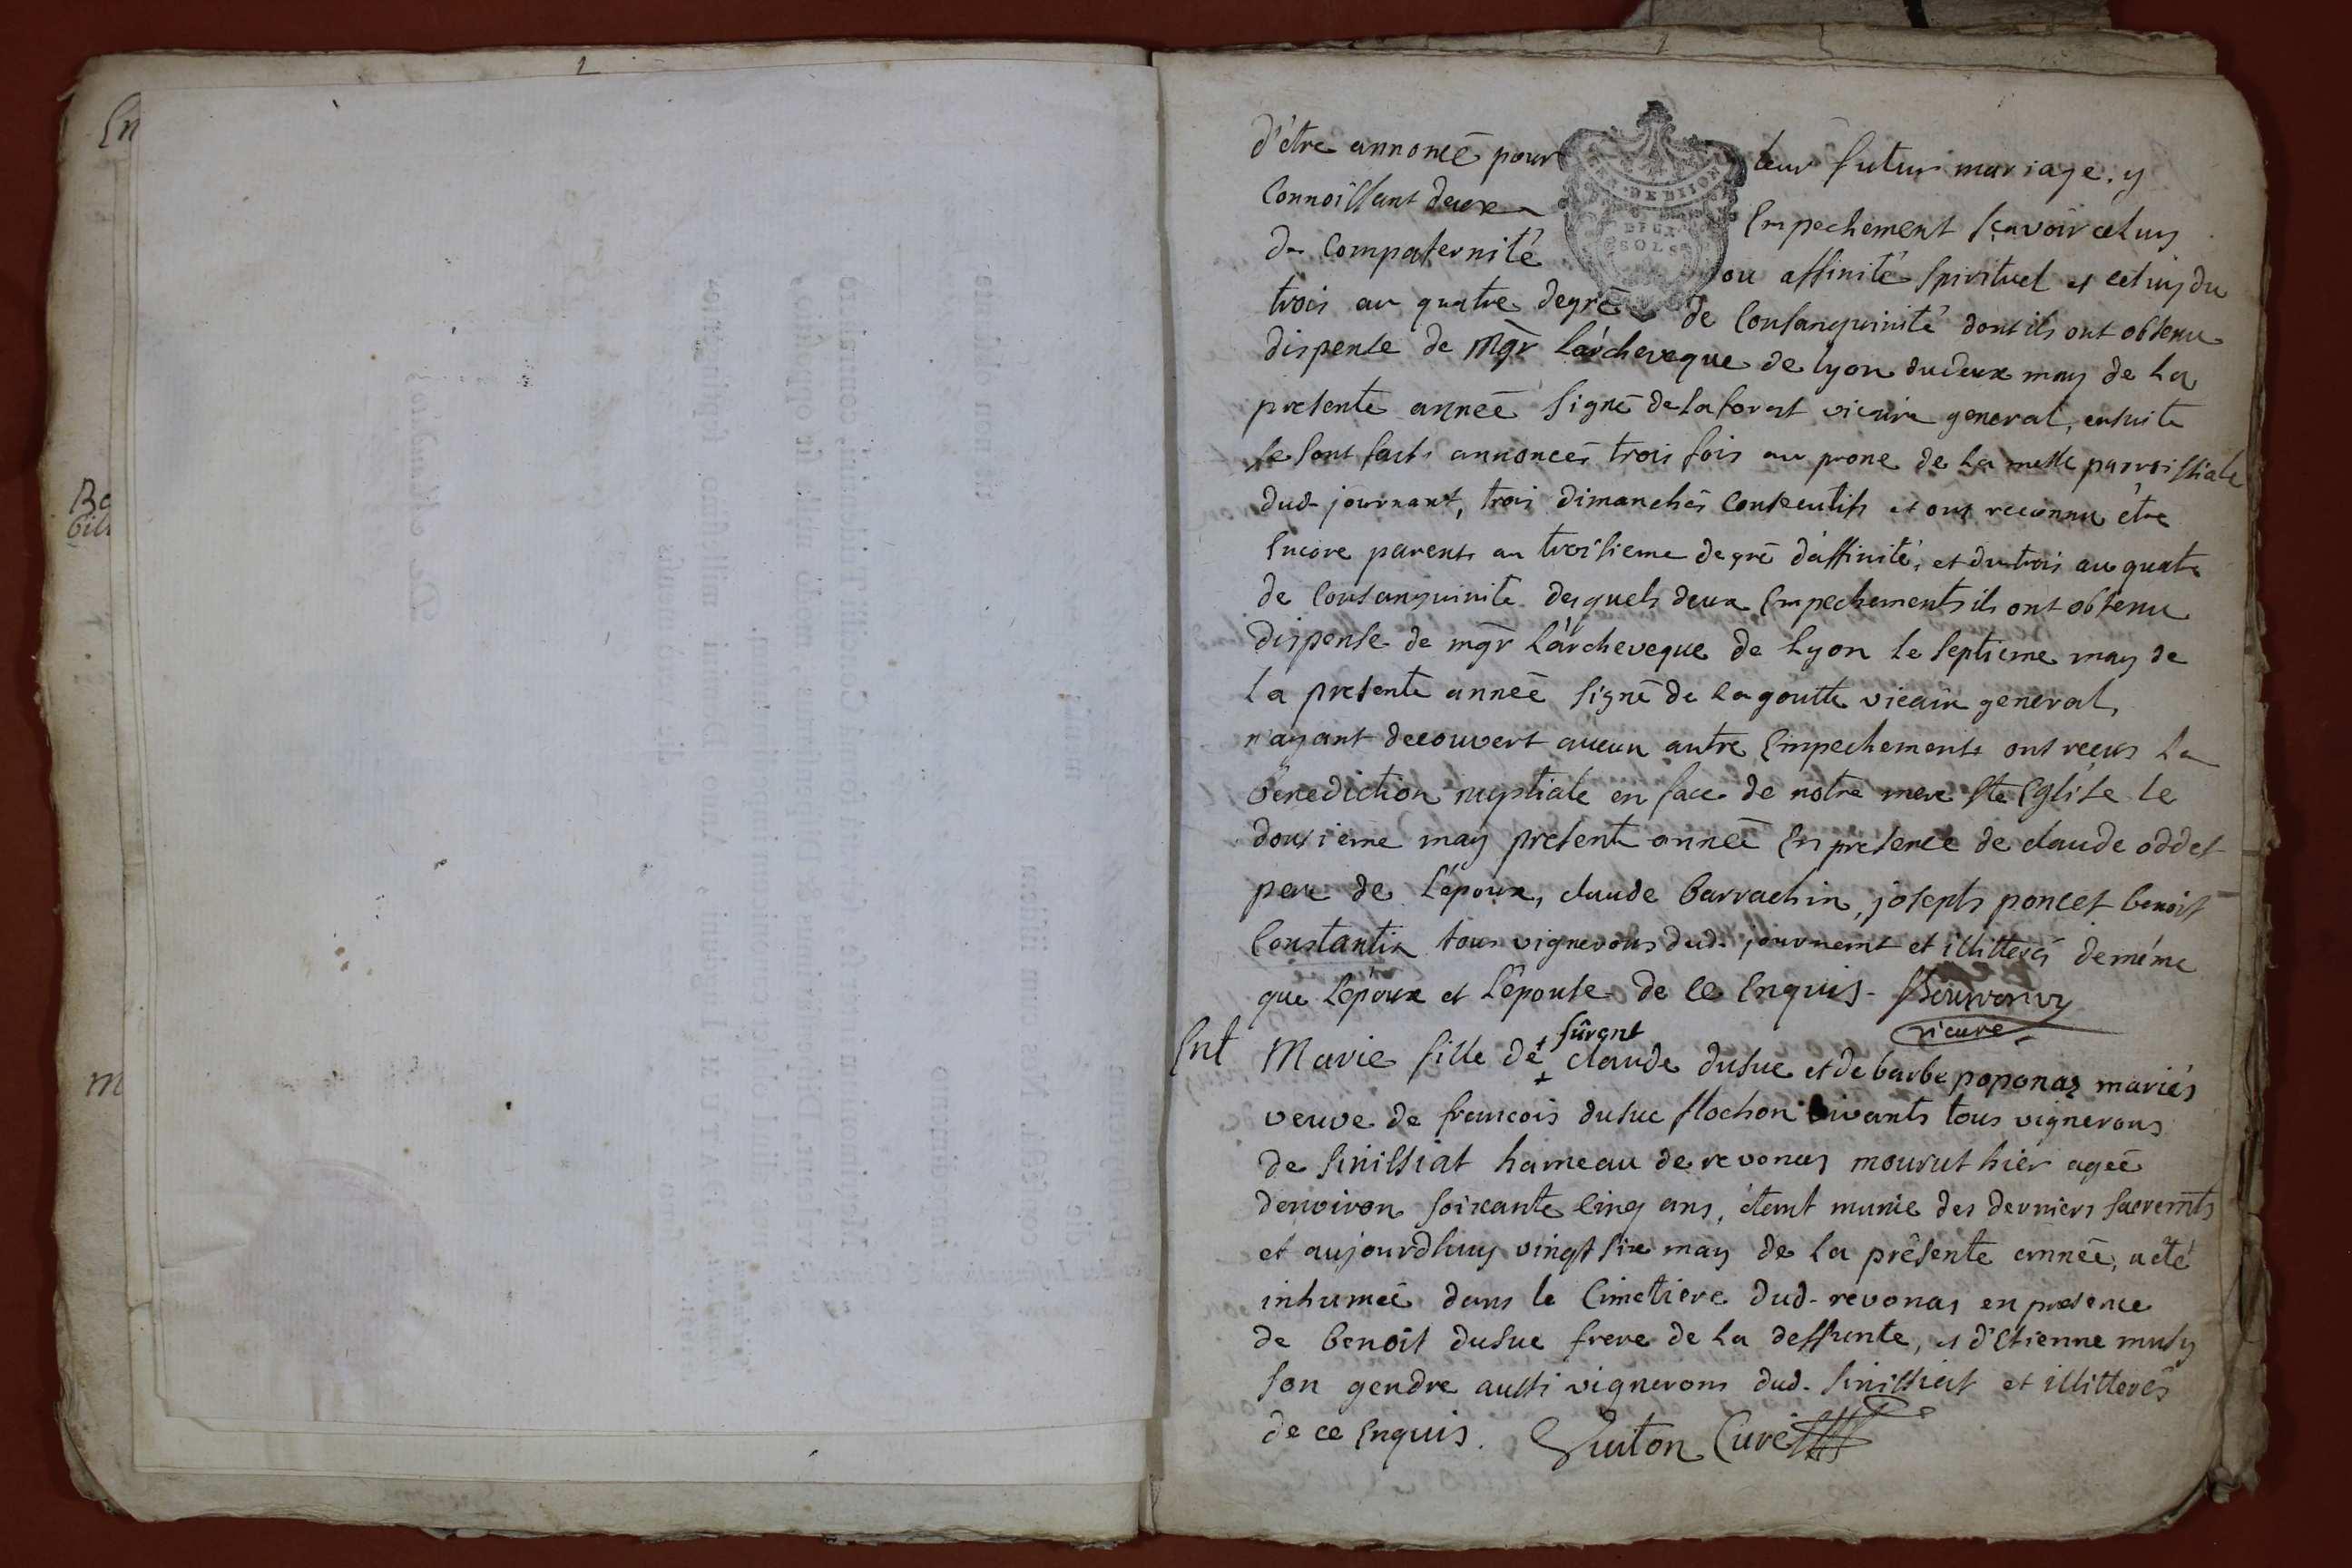 d'être annoncé pour leur futur mariage. y
Connoissant deux Empechement sçavoir celuy
de Compaternité ou affinité spirituel et celuy du
trois au quatre degré de Consanguinité dont ils ont obtenu
dispense de Mgr L'archeveque de Lyon du deux may de La
presente année signé de Laforest vicaire general, ensuite
se sont faits annoncés trois fois au prone de La messe parroissiale
dud journant, trois dimanches Consecutifs et ont reconnu être
Encore parents au troisieme degré d'affinité, et du trois au quatre
de Consanguinité desquels deux Empechements ils ont obtenu
Dispense de mgr L'archeveque de Lyon le septieme may de
La presente année signé de Lagoutte vicaire general,
n'ayant decouvert aucun autre Empechements ont recus La
Benediction nuptiale en face de notre mere Ste Eglise le
dousieme may presente année En presence de claude oddet
pere de L'epoux, claude Barrachin, joseph poncet benoist
Constantin tous vignerons dud. journant et illitterés de même
que L'epoux et L'epouse de ce Enquis.
vicaire
Ent Marie fille de + fûrent claude dusuc et de barbe poponaz mariés
veuve de francois dusuc flochon vivants tous vignerons
de sinissiat hameau de revonas mourut hier agée
d'environ soixante cinq ans, étant munie des derniers sacremts
et aujourdhuy vingt six may de La présente année, a été
inhumée dans le Cimetiere dud. revonas en presence
de Benoit dusuc frere de La deffunte, et d'Etienne musy
son gendre aussi vignerons dud. sinissiat et illitterés
de ce Enquis. Guiton Curé
En
m
DEUX
SOLS